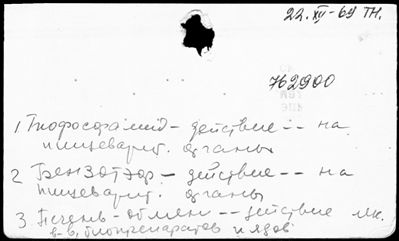 22.XII-69 ТН.
762900
1 Тиофосфамид - действие -- на
пищеварит. органы
2 Бензотэф - действие -- на
пищеварит. органы
3 Печень - обмен -- действие лек.
в-в, биопрепаратов и ядов